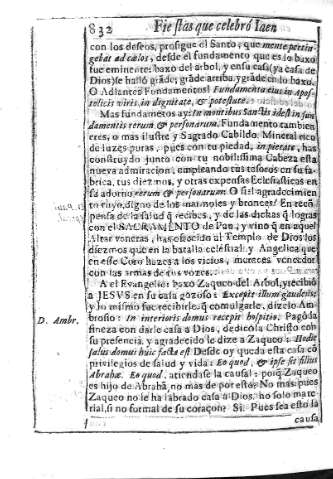 832 Fiestas que celebrò Iaen
con los deseos, prosigue el Santo, que mente pertin-
gebat ad cælos, desde el fundamento que es lo baxo
fue eminente: baxo del arbol, y en su casa (ya casa de
Dios) se hallò grãde, grãde arriba, y grãde en lo baxo.
O Adlantes Fundamentos! Fundamenta eius in Apos-
tolicis viris, in dignitate, & potestate.
Mas fundamētos ay: in montibus Sanctis idest in fun-
damentis rerum & personarum. Fundamento tambien
eres, o mas ilustre y Sagrado Cabildo. Mineral rico
de luzes puras, pues con tu piedad, in pietate, has
construydo junto con tu nobilissima Cabeza esta
nueva admiracion, empleando tus tesoros en su fa-
brica, tus diezmos, y otras expensas Eclesiasticas en
su adorno rerum & personarum. O si el agradecimiẽ
to tuyo, signo de los marmoles y bronces! En recõ
pensa de la salud q̃ recibes, y de las dichas q̃ logras
con el SACRAMENTO de Pan, y vino q̃ en aquel
Altar veneras, has ofrecido al Templo de Dios los
diezmos que en la batalla celestial y Angelica que
en esse Coro hazes a los vicios, mereces vencedor
con las armas de tus vozes.
A el Evangelio: baxò Zaqueo del Arbol, y recibiò
a JESVS en su casa gozoso: Excepit illum gaudens,
y lo mismo fue recibirle, q̃ comulgarle, dizelo Am-
D. Ambr. broso: In interioris domus recepit hospitio. Pagòda
fineza con darle casa a Dios, dedicòla Christo con
su presencia, y agradecido le dize a Zaqueo: Hodie
salus domui huic facta est Desde oy queda esta casa cõ
privilegios de salud y vida: Eo quod, & ipse sit filius
Abrahæ. Eo quod, atiendase la causal: porq̃ Zaqueo
es hijo de Abrahã, no mas de por esto? No mas: pues
Zaqueo no le ha labrado casa a Dios, no solo mate-
rial, si no formal de su coraçon? Si. Pues sea esto la
causa